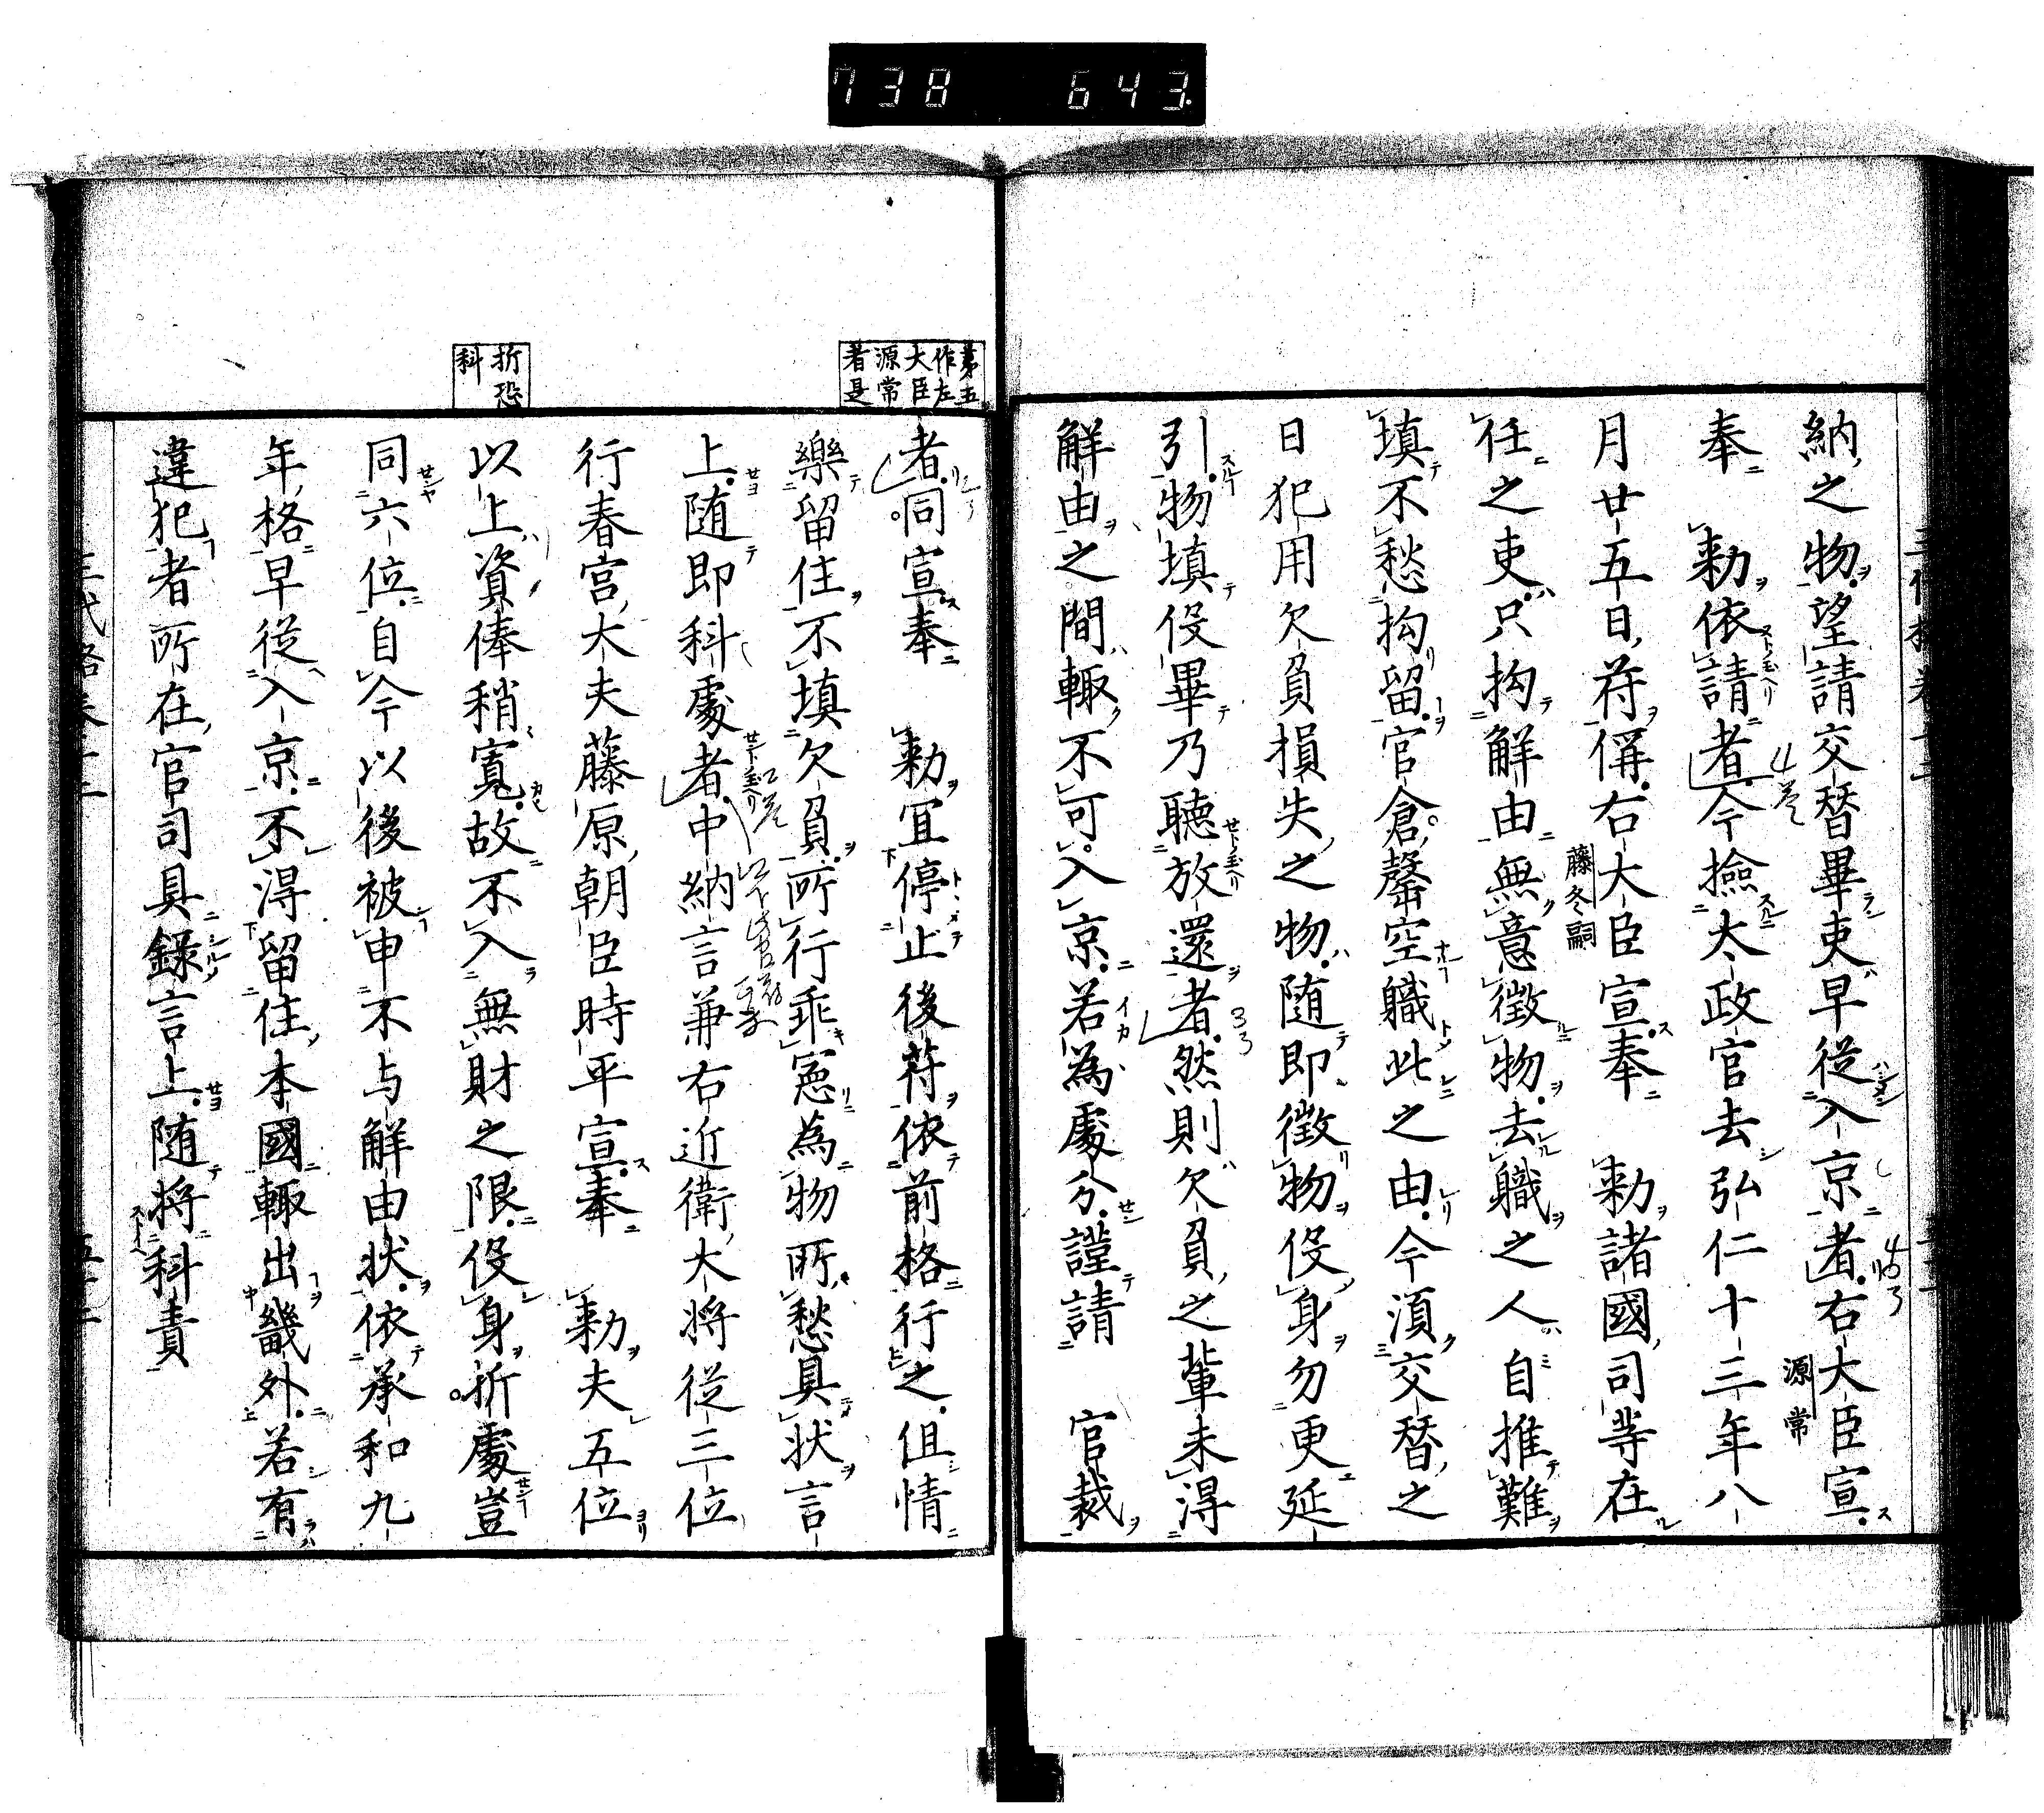 738 643
納之物望請交替畢吏早從入京者右大臣宣
源常
奉 勅依請者今撿太政官去弘仁十三年八
月廿五日符偁右大臣宣奉 勅諸國司等在
藤冬嗣
任之吏只拘解由無意徵物去職之人自推難
填不愁拘留官倉罄空職此之由今須交替之
日犯用欠負損失之物随即徵物役身勿更延
引物填役畢乃聽放還者然則欠負之輩未得
解由之間輙不可入京若為處分謹請 官裁
第五
作左
大臣
源常
者是
者同宣奉 勅宜停止後符依前格行之但情
樂留住不填欠負所行乖憲為物所愁具状言
上随即科處者中納言兼右近衛大将從三位
行春宮大夫藤原朝臣時平宣奉 勅夫五位
折恐
科
以上資俸稍寬故不入無財之限役身折處豈
同六位自今以後被申不与解由状依承和九
年格早從入京不得留住本國輙出畿外若有
違犯者所在官司具錄言上随将科責